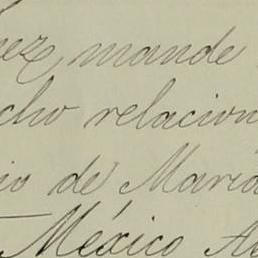 ez, mande
cho relacion
io de Maria
México A